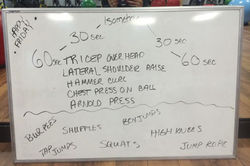 HAPPY
FRIDAY!
Isometric
30 sec
30 sec
60 sec
60 sec
TRICEP OVERHEAD
LATERAL SHOULDER RAISE
HAMMER CURL
CHEST PRESS ON BALL
ARNOLD PRESS
BURPEES
SHUFFLES
BOX JUMPS
HIGH KNEES
TAP JUMPS
SQUATS
JUMP ROPE